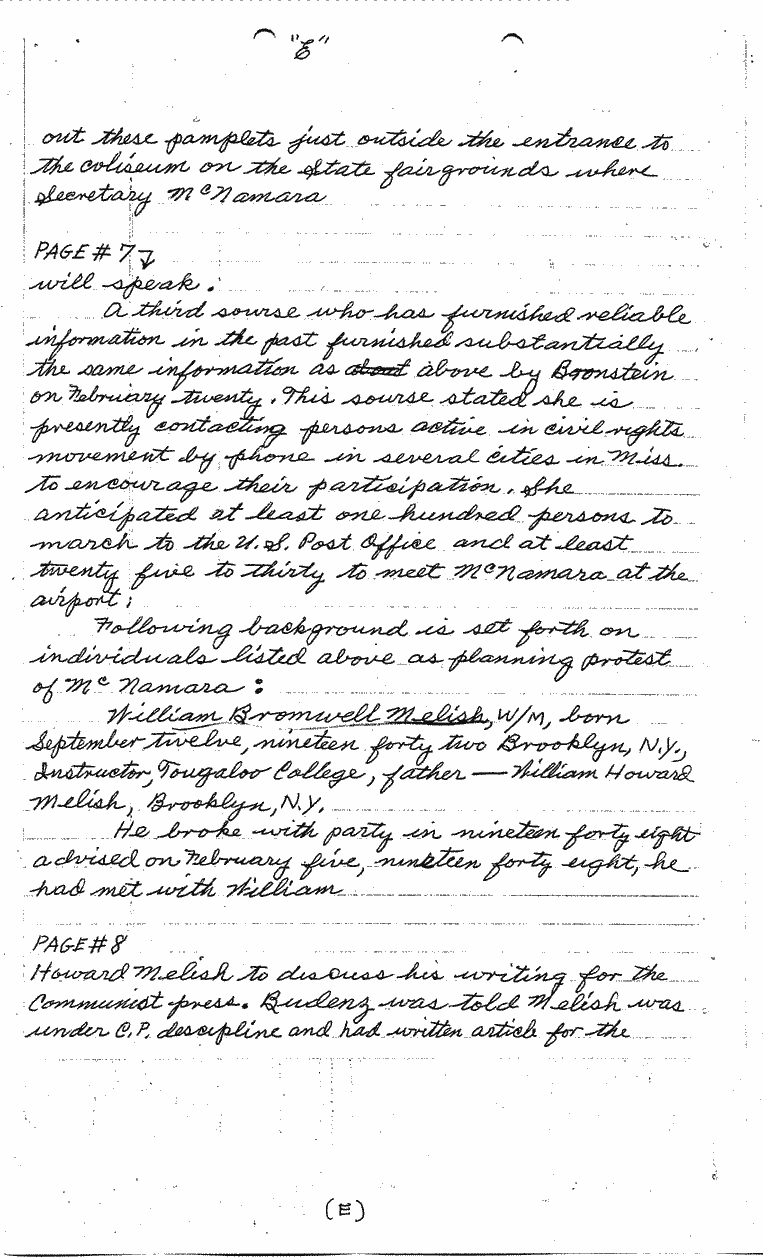 "E"
out these pamplets just outside the entrance to
the coliseum on the State fairgrounds where
Secretary McNamara
PAGE # 7
will speak.
A third sourse who has furnished reliable
information in the past furnished substantially
the same information as above by Bronstein
on February twenty. This sourse stated she is
presently contacting persons active in civil rights
movement by phone in several cities in Miss.
to encourage their participation. She
anticipated at least one hundred persons to
march to the U.S. Post Office and at least
twenty five to thirty to meet McNamara at the
airport;
Following background is set forth on
individuals listed above as planning protest
of Mc Namara :
William Bromwell Melish, W/M, born
September twelve, nineteen forty two Brooklyn, N.Y.,
Instructor, Tougaloo College, father — William Howard
Melish, Brooklyn, N.Y.
He broke with party in nineteen forty eight
advised on February five, nineteen forty eight, he
had met with William
PAGE # 8
Howard Melish to discuss his writing for the
Communist press. Budenz was told Melish was
under C.P. descipline and had written article for the
(E)